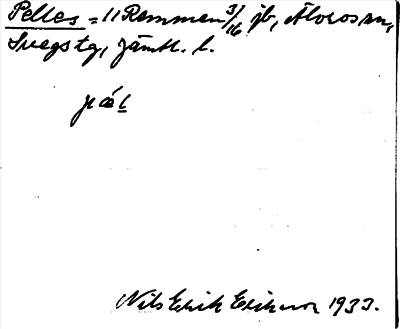 Pelles = 11 Remmen 3/16 jb, Älvros sn,
Svegs tg, Jämtl. l.
Nils Erik Eriksson 1933.